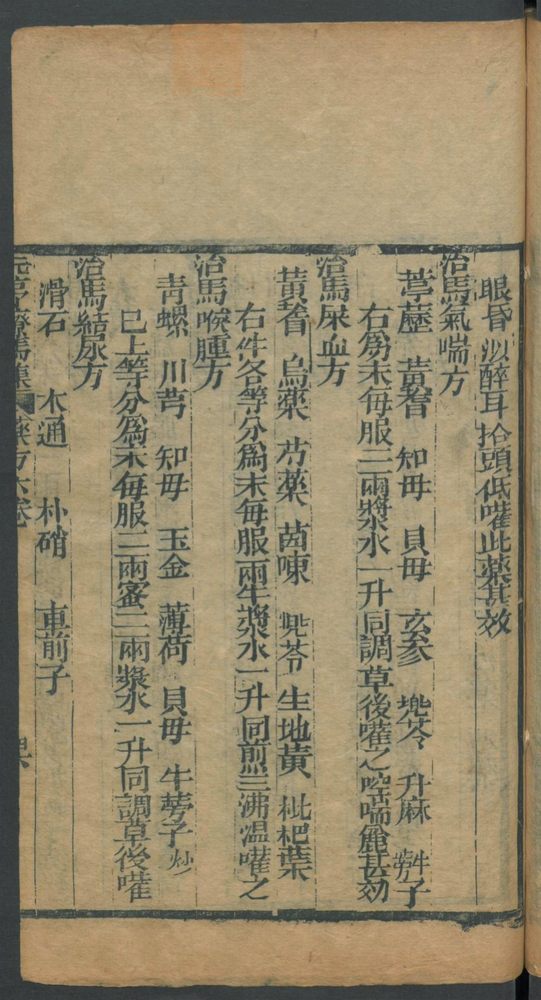 眼昏似醉耳拾頭低嚾此藥甚效
治馬氣喘方
葶藶 黃耆 知毋 貝毋 玄參 兠苓 升麻 牛蒡子
右爲末每服二兩漿水一升同調草後嚾之啌喘麄甚効
治馬尿血方
黃耆 烏藥 芍藥 茵陳 兠苓 生地黃 枇杷葉
右件各等分爲末每服兩牛漿水一升同煎三沸温嚾之
治馬喉腫方
青螺 川芎 知毋 玉金 薄荷 貝毋 牛蒡子炒
巳上等分爲末每服二兩蜜二兩漿水一升同調草後嚾
治馬結尿方
滑石 木通 朴硝 車前子
元亨療馬集 藥方六卷